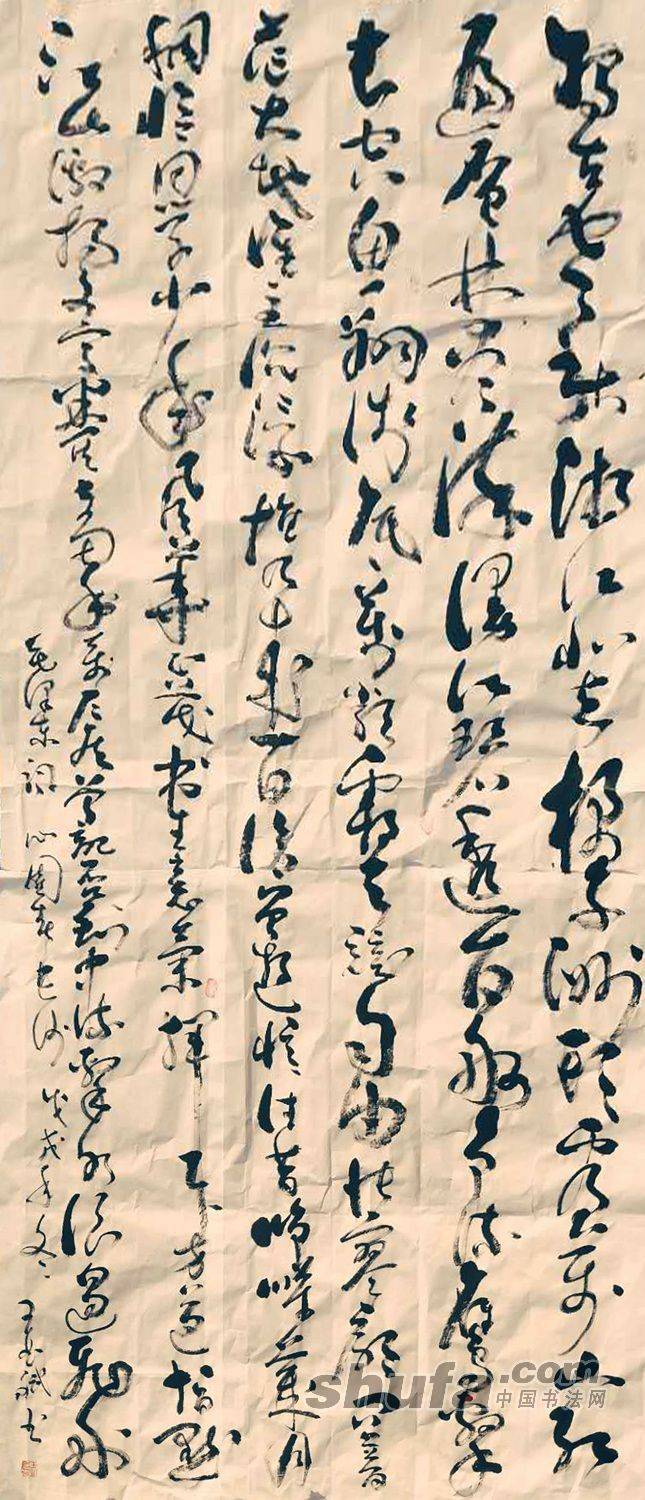 独立寒秋湘江北去橘子洲头看万山红
遍层林尽染漫江碧透百舸争流鹰击
长空鱼翔浅底万类霜天竞自由怅寥廓问苍
茫大地谁主沉浮携来百侣曾游忆往昔峥嵘岁月
稠恰同学少年风华正茂书生意气挥斥方遒指点
江山激扬文字粪土当年万户侯曾记否到中流击水浪遏飞舟
毛泽东词沁园春长沙戊戌年 王 书
shufa.com
中国书法网